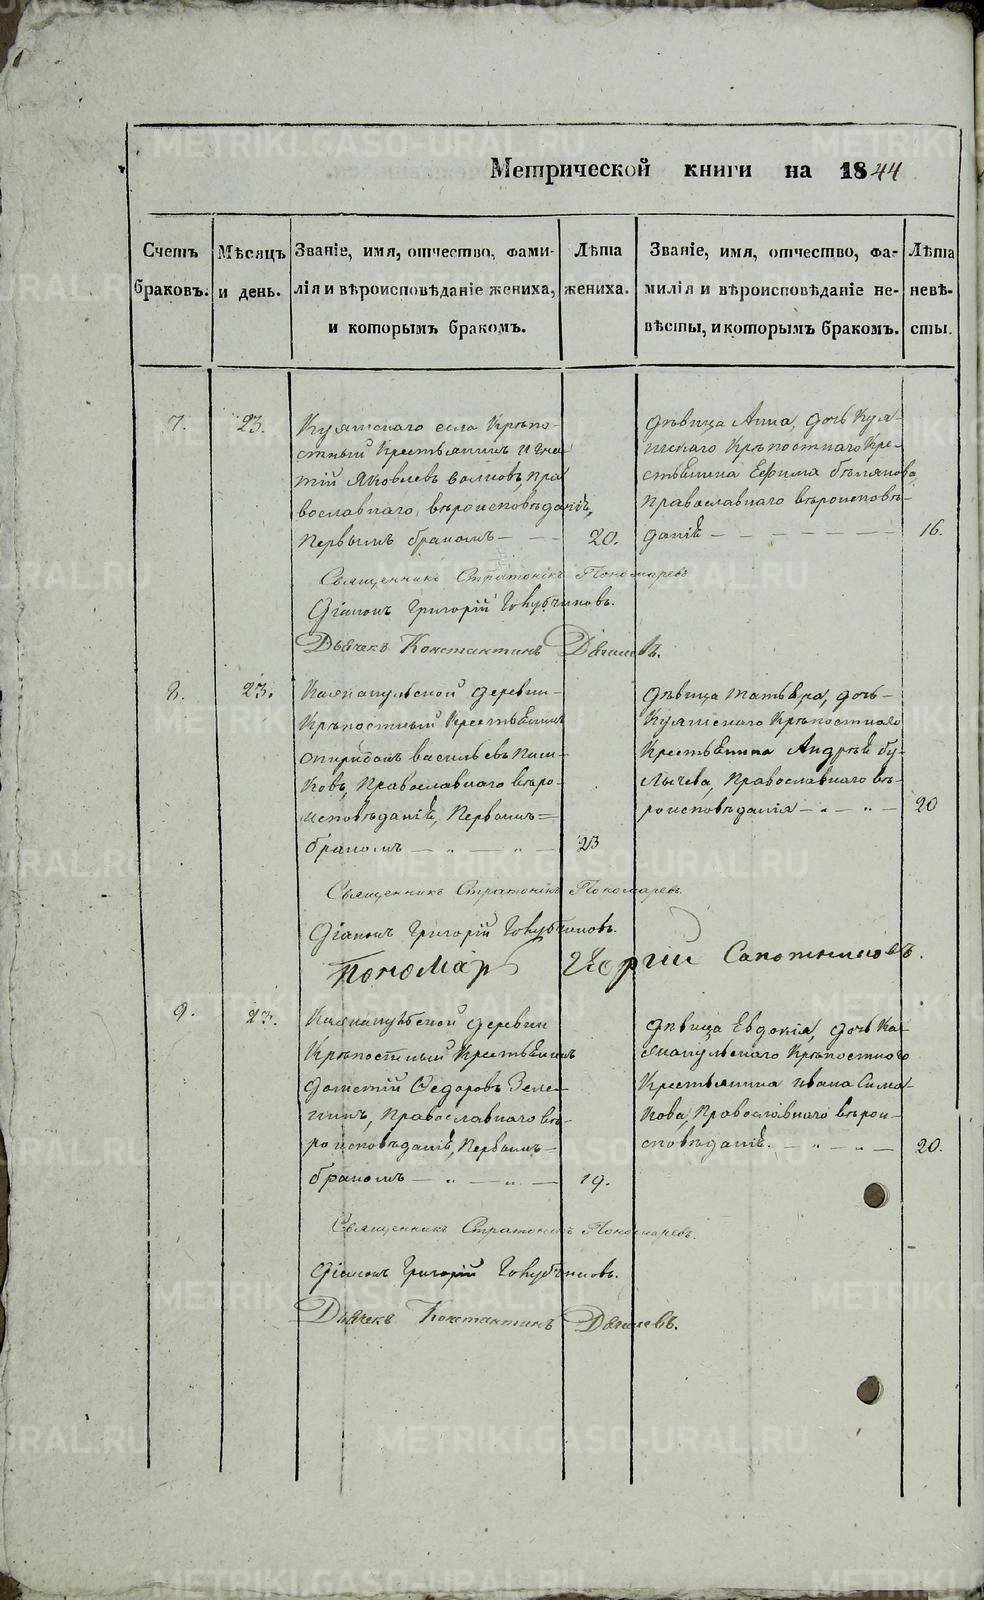 Метрической книги на 1844
Счетъ браковъ.
Мѣсяцъ и день.
Званіе, имя, отчество, фами-
лія и вѣроисповѣданіе жениха,
и которымъ бракомъ.
Лѣта жениха.
Званіе, имя, отчество, фа-
милія и вѣроисповѣданіе не-
вѣсты, и которымъ бракомъ.
Лѣта невѣ-
сты.
7.
23.
Куяшскаго села Крѣпо-
стный Крестьянинъ Игна
тій Яковлевъ Волковъ, пра
вославнаго, вѣроисповѣданія,
Первымъ бракомъ — — —
20.
Дѣвица Анна, дочь Куя-
шскаго Крѣпостнаго Кре-
стьянина Ефима Бѣлянова,
Православнаго вѣроисповѣ-
данія — — — — — — —
16.
Священникъ Стратоникъ Пономаревъ
Діаконъ Григорій Голубчиковъ.
Дьячекъ Константинъ Дягилевъ.
8.
23.
деревни
Крѣпостный Крестьянинъ
Спиридонъ Васильевъ
ковъ, Православнаго вѣро-
исповѣданія, Первымъ =
бракомъ — „ — „ —
23
Дѣвица дочь —
Куяшскаго Крѣпостнаго
Крестьянина Андрея Бу-
лычева, Православнаго вѣ-
роисповѣданія — „ — „ —
20
Священникъ Стратоникъ Пономаревъ.
Діаконъ Григорій Голубчиковъ.
Пономарь Георгій Сапожниковъ.
9.
23.
деревни
Крѣпостный Крестьянинъ
Ѳедоровъ Зеле-
нинъ, Православнаго вѣ-
роисповѣданія, Первымъ =
бракомъ — „ — „ —
19.
Дѣвица Евдокія, дочь Ка-
Крѣпостнаго
Крестьянина Ивана Сима-
кова, Православнаго вѣрои-
сповѣданія. — „ — „ —
20.
Священникъ Стратоникъ Пономаревъ.
Діаконъ Григорій Голубчиковъ.
Дьячекъ Константинъ Дягилевъ.
METRIKI.GASO-URAL.RU